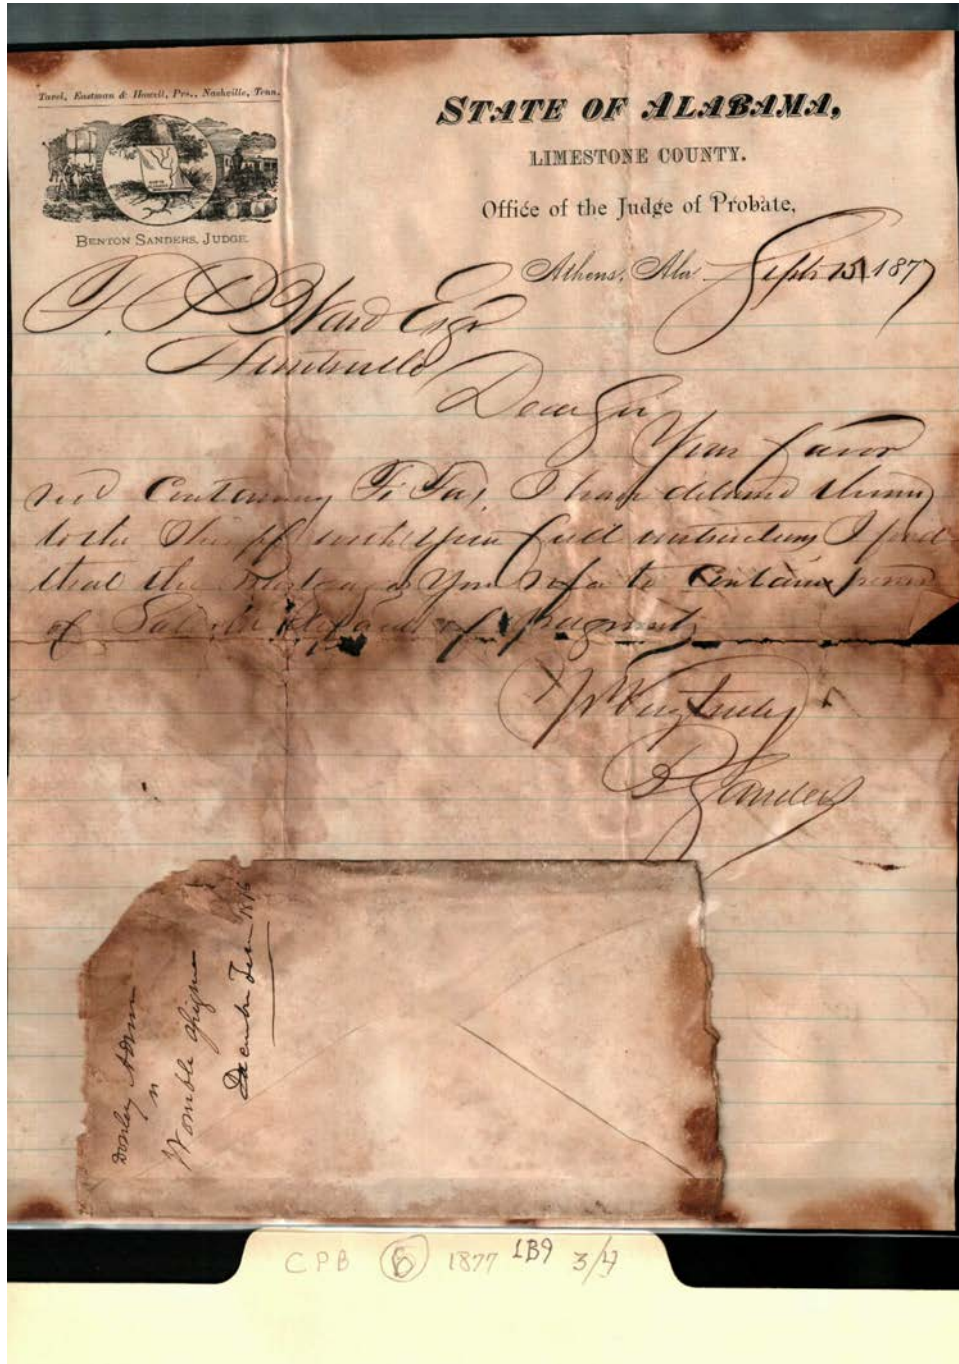 Tavel, Eastman & Howell, Prs., Nashville, Tenn.
STATE OF ALABAMA,
LIMESTONE COUNTY.
Office of the Judge of Probate,
BENTON SANDERS, JUDGE.
Athens, Ala Sept 15 1877
Ward Esqr
Huntsville
Dear Sir
Your favor
recd Containing Fi Fas, I have delivered them
to the Sheriff with your full instructions I find
that the you refer to Contains power
of Sale in default of payment
Very truly
B Sanders
Donley Admr
vs
Womble
December Term 1876
CPB 6 1877 1B9 3/4